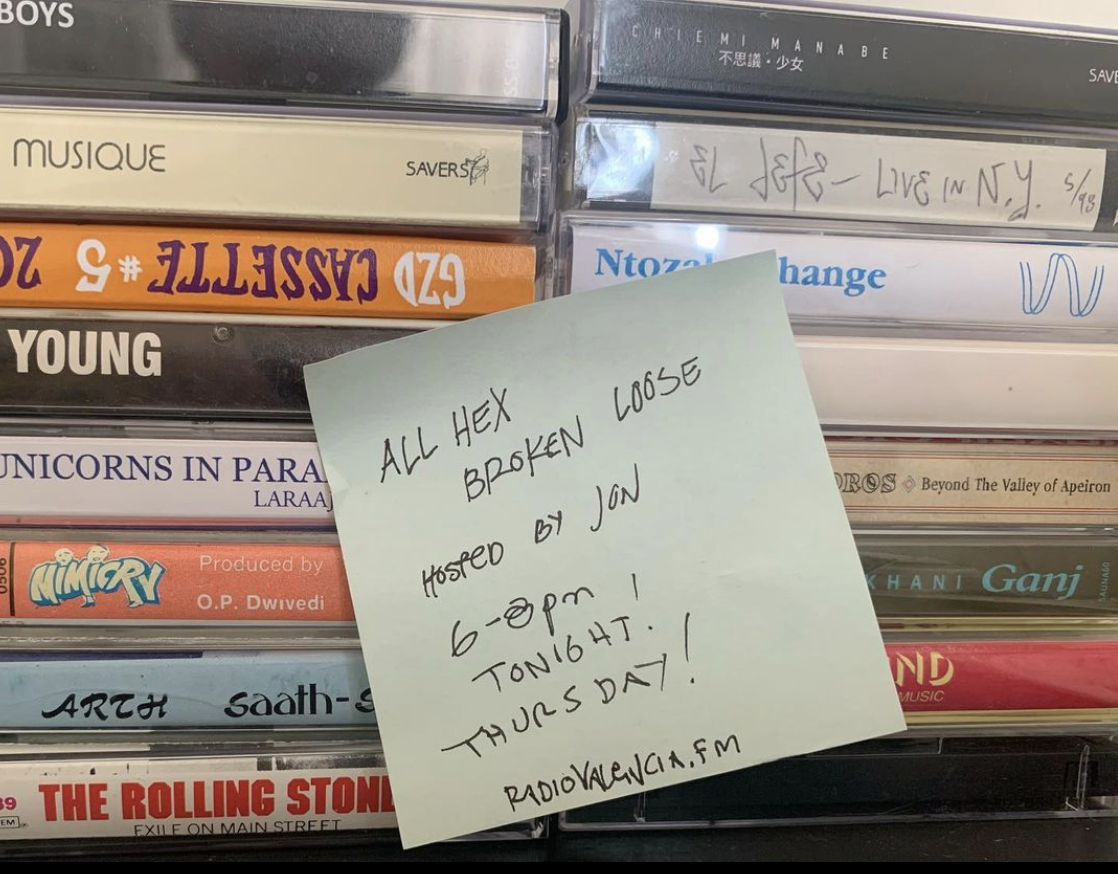 BOYS
MUSIQUE
SAVERS
GZD CASSETTE #5
YOUNG
UNICORNS IN PARA
LARAAJ
MIMICRY
Produced by
O.P. Dwivedi
ARTH saath-
THE ROLLING STON
EXILE ON MAIN STREET
CHIEMI MANABE
不思議・少女
SAVE
EL JEFE – LIVE IN N.Y. 5/98
Ntoza hange
ROS Beyond The Valley of Apeiron
KHANI Ganj
ND
MUSIC
ALL HEX
BROKEN LOOSE
HOSTED BY JON
6-8pm!
TONIGHT.
THURSDAY!
RADIOVALENCIA.FM